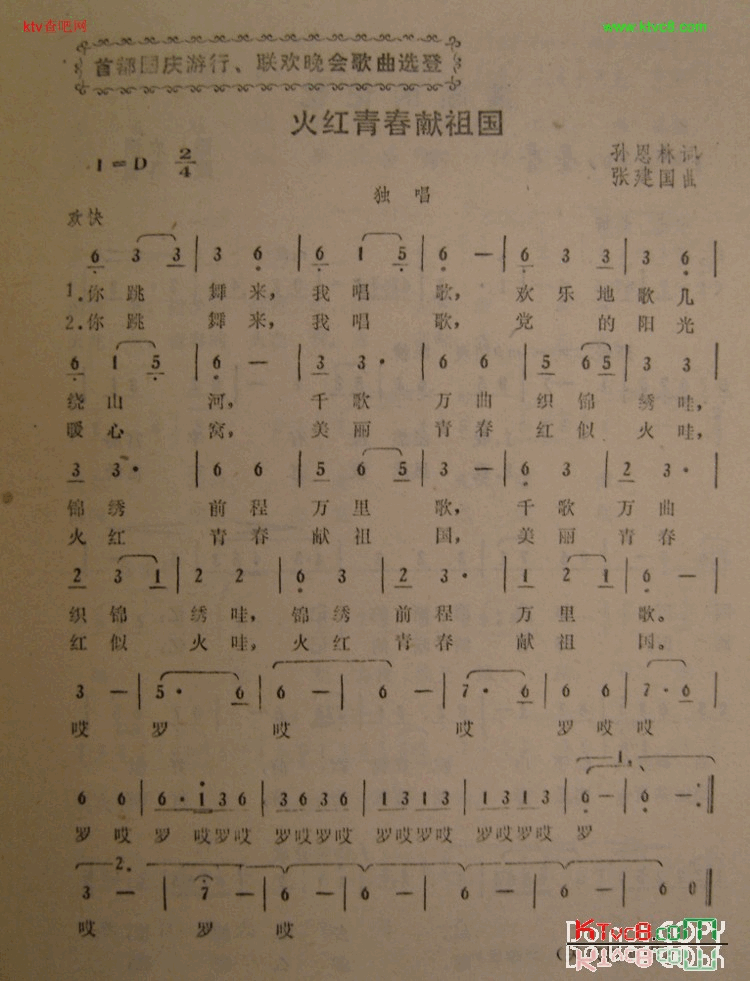 ktv查吧网
www.ktvc8.com
首都国庆游行、联欢晚会歌曲选登
火红青春献祖国
1=D 2/4
孙恩林词
张建国曲
独唱
欢快
6 3 3 | 3 6 | 6 1 5 | 6 — | 6 3 3 | 3 6 |
1.你跳 舞来,我唱 歌, 欢乐地歌儿
2.你跳 舞来,我唱 歌, 党 的阳光
6 1 5 | 6 — | 3 3· | 6 6 | 5 6 5 | 3 3 |
绕山 河, 千歌 万曲 织锦 绣哇,
暖心 窝, 美丽 青春 红似 火哇,
3 3· | 6 6 | 5 6 5 | 3 — | 6 3 | 2 3· |
锦绣 前程 万里 歌, 千歌 万曲
火红 青春 献祖 国, 美丽 青春
2 3 1 | 2 2 | 6 3 | 2 3· | 1 2 1 | 6 — |
织锦 绣哇, 锦绣 前程 万里 歌。
红似 火哇, 火红 青春 献祖 国。
3 — | 5· 6 | 6 — | 6 — | 7· 6 | 5 — | 6 6 | 7· 6 |
哎 罗 哎 哎 罗 哎哎
6 6 | 6· i 3 6 | 3 6 3 6 | 1 3 1 3 | 1 3 1 3 | 1 3 1 3 | 1. 6 — | 6 — :|
罗 哎 罗 哎罗哎 罗哎罗哎 罗哎罗哎 罗哎罗哎 罗
2. 3 — | 7 — | 6 — | 6 — | 6 — | 6 — | 6 — | 6 0 ‖
哎 罗 哎
KTvc8.com
DO NOT COPY